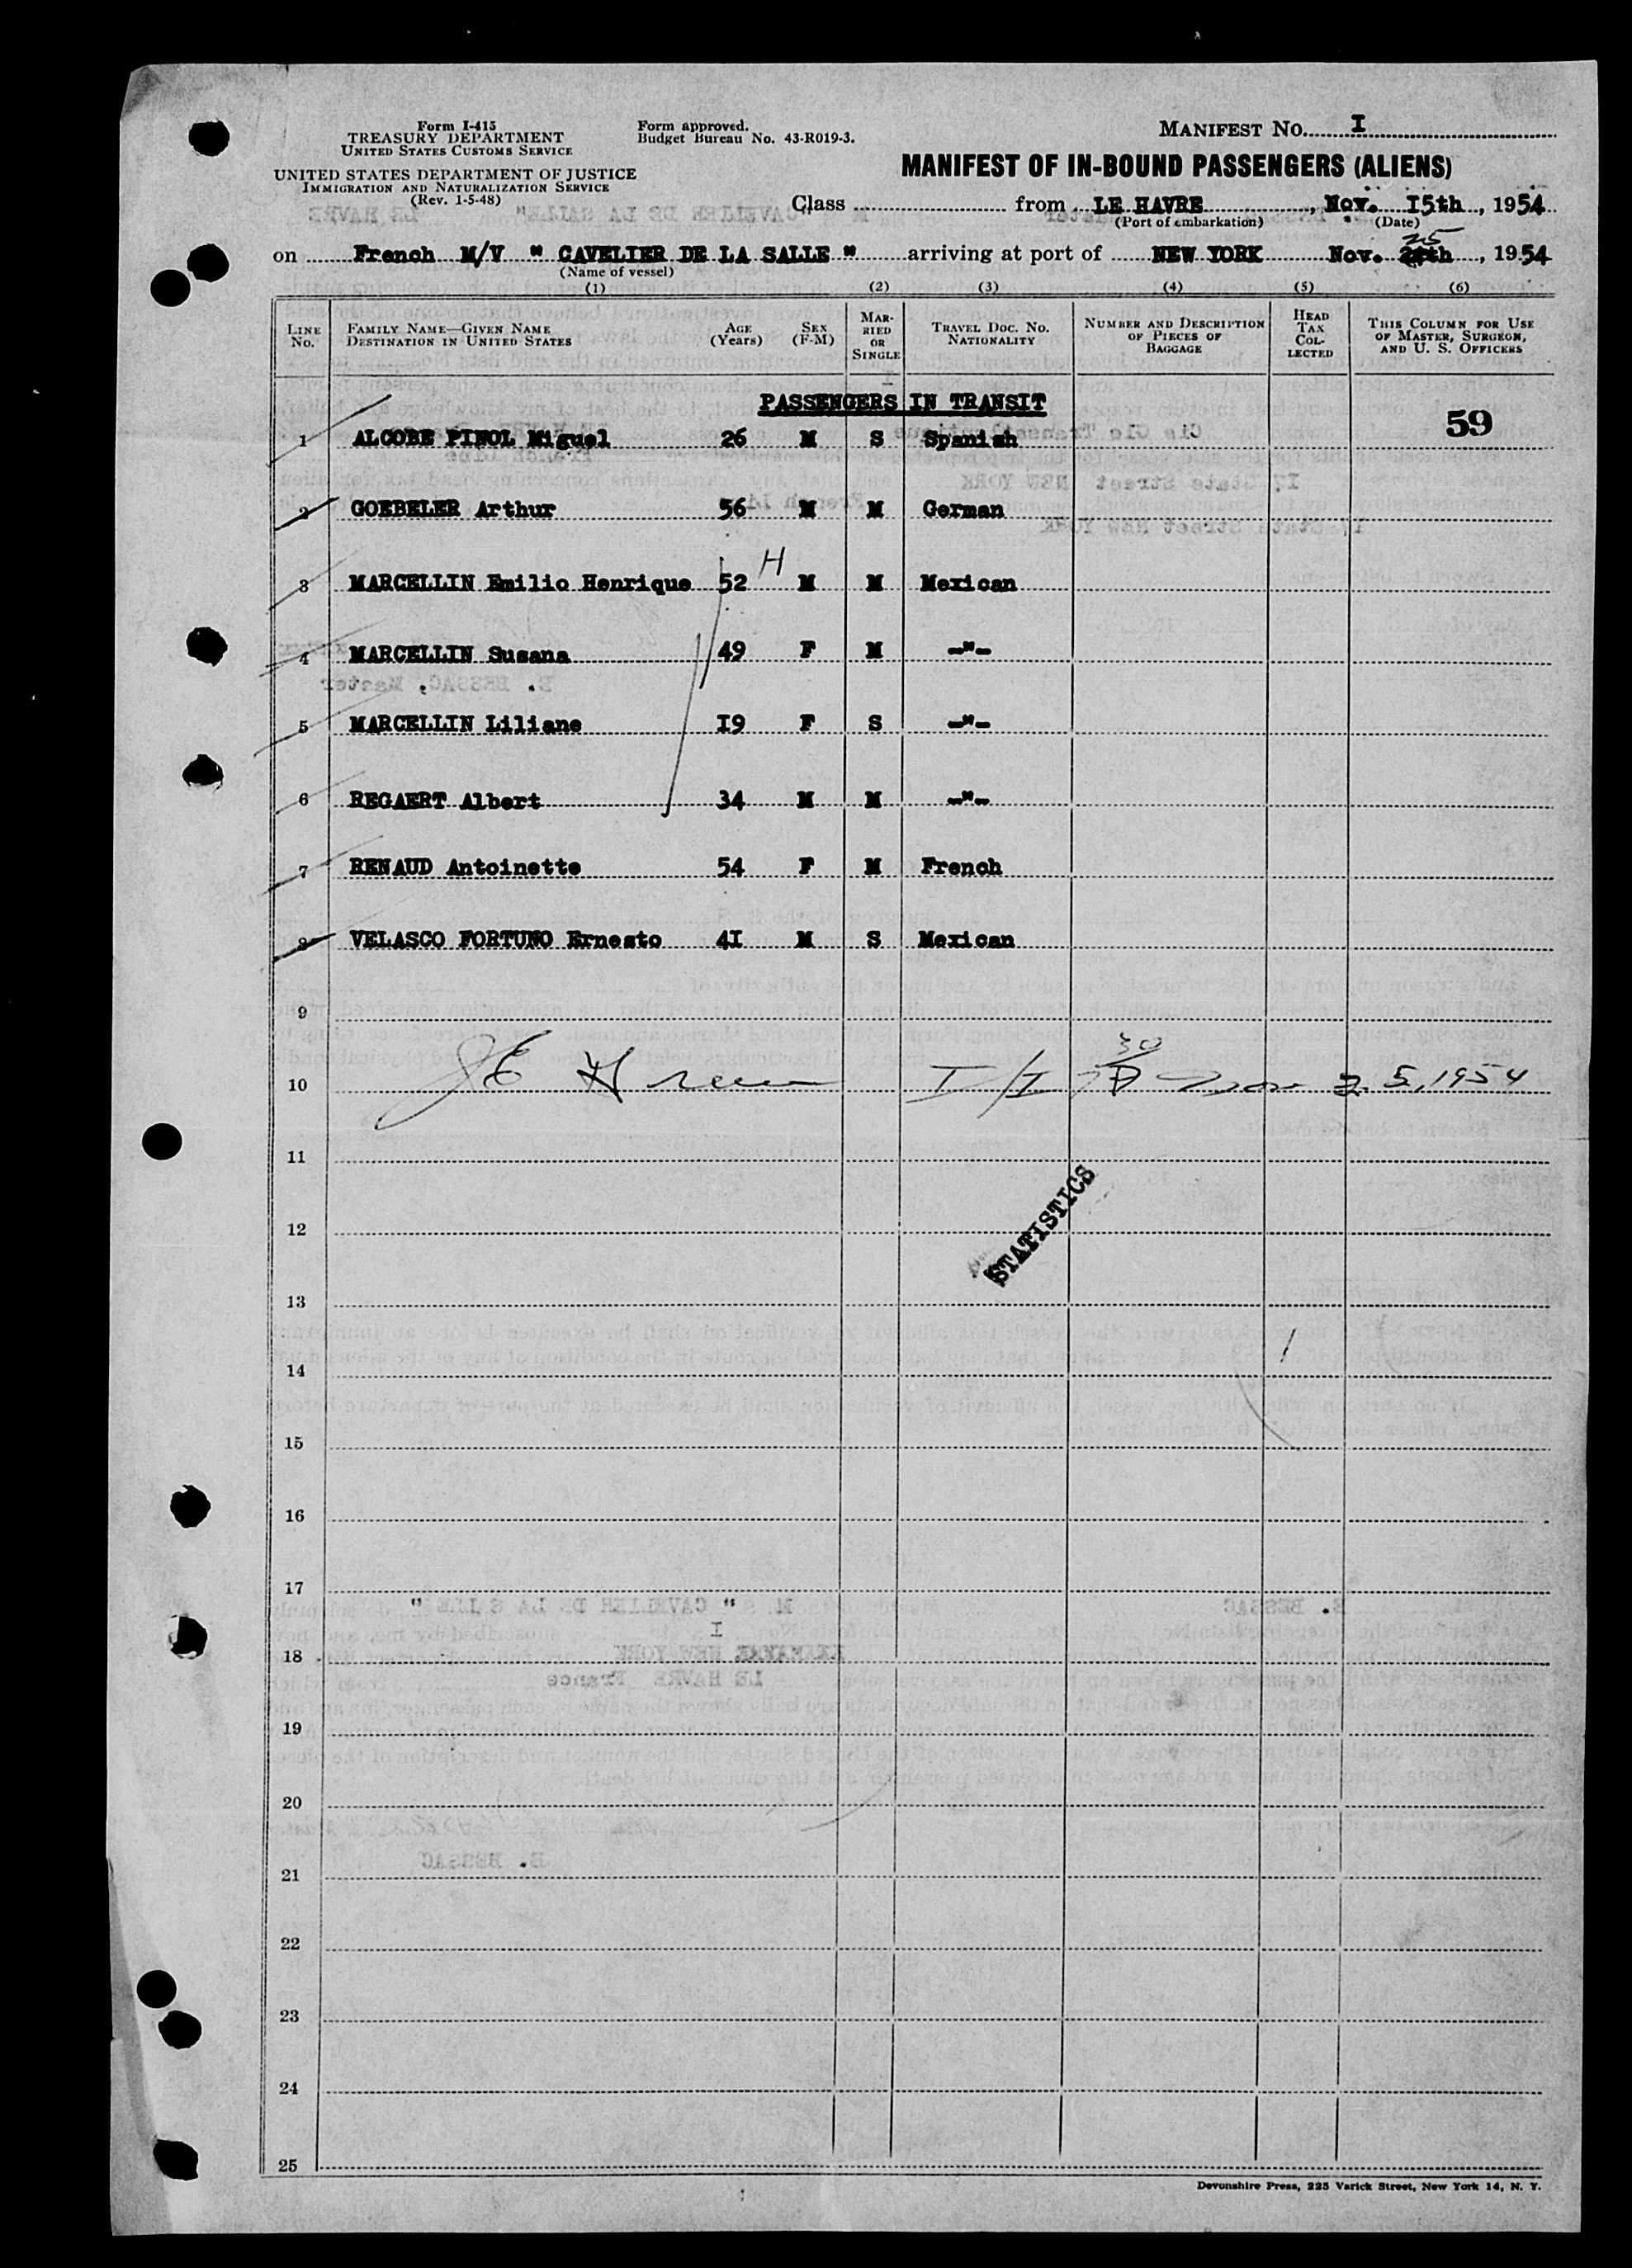 Form I-415
TREASURY DEPARTMENT
UNITED STATES CUSTOMS SERVICE
UNITED STATES DEPARTMENT OF JUSTICE
IMMIGRATION AND NATURALIZATION SERVICE
(Rev. 1-5-48)
Form approved.
Budget Bureau No. 43-R019-3.
MANIFEST NO. I
MANIFEST OF IN-BOUND PASSENGERS (ALIENS)
Class from LE HAVRE, Nov. I5th, 1954
(Port of embarkation) (Date)
25
on French M/V " CAVELIER DE LA SALLE " arriving at port of NEW YORK Nov. th, 1954
(Name of vessel)
(1) (2) (3) (4) (5) (6)
LINE NO. FAMILY NAME—GIVEN NAME DESTINATION IN UNITED STATES AGE (Years) SEX (F-M) MARRIED OR SINGLE TRAVEL DOC. NO. NATIONALITY NUMBER AND DESCRIPTION OF PIECES OF BAGGAGE HEAD TAX COLLECTED THIS COLUMN FOR USE OF MASTER, SURGEON, AND U. S. OFFICERS
PASSENGERS IN TRANSIT
59
1 ALCOBE PINOL Miguel 26 M S Spanish
2 GOEBELER Arthur 56 M M German
H
3 MARCELLIN Emilio Henrique 52 M M Mexican
4 MARCELLIN Susana 49 F M -"-
5 MARCELLIN Liliane I9 F S -"-
6 REGAERT Albert 34 M M -"-
7 RENAUD Antoinette 54 F M French
8 VELASCO FORTUNO Ernesto 4I M S Mexican
9
30
10 I/I Nov 25, 1954
11
STATISTICS
12
13
14
15
16
17
18
19
20
21
22
23
24
25
Devonshire Press, 225 Varick Street, New York 14, N. Y.